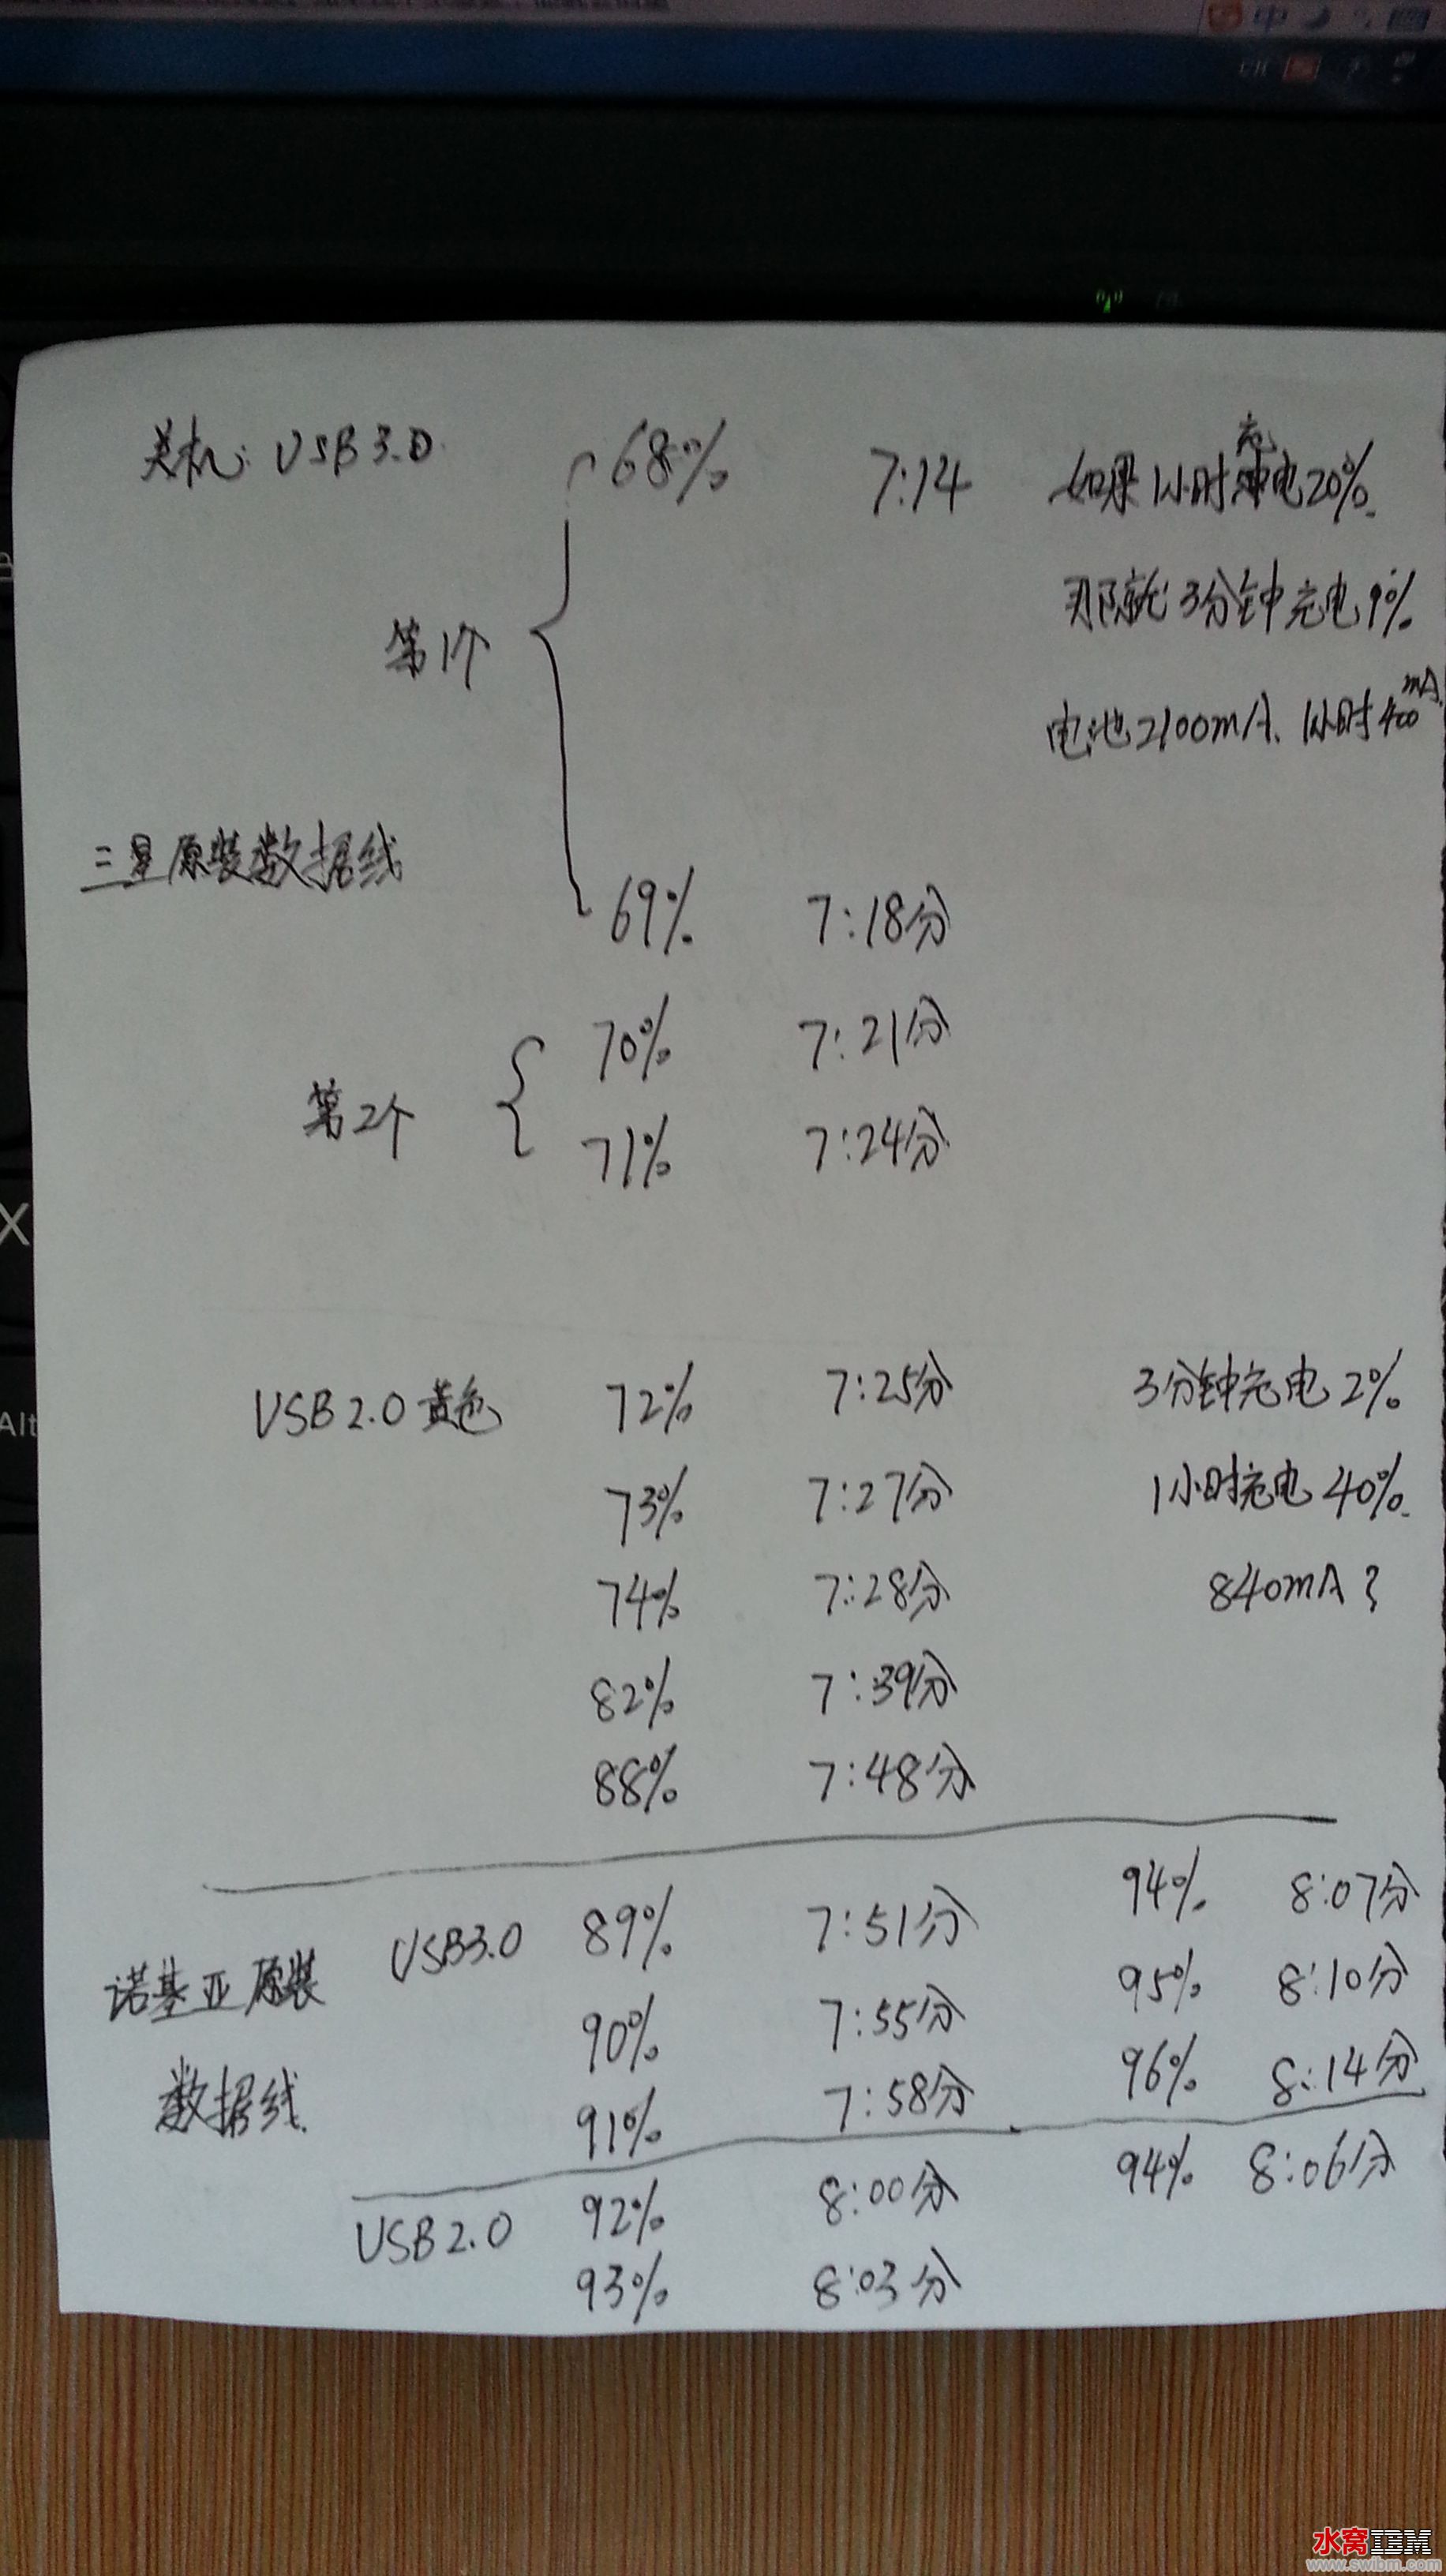 中
CH
关机: USB3.0 68% 7:14 如果1小时充电20%.
那就3分钟充电1%.
第1个
电池2100mA. 1小时400mA.
三星原装数据线
69% 7:18分
70% 7:21分
第2个
71% 7:24分
USB2.0黄色 72% 7:25分 3分钟充电2%
73% 7:27分 1小时充电40%.
74% 7:28分 840mA?
82% 7:39分
88% 7:48分
94% 8:07分
USB3.0 89% 7:51分
诺基亚原装
95% 8:10分
90% 7:55分
96% 8:14分
数据线.
91% 7:58分
94% 8:06分
USB2.0 92% 8:00分
93% 8:03分
X
Alt
水窝IBM
www.swibm.com